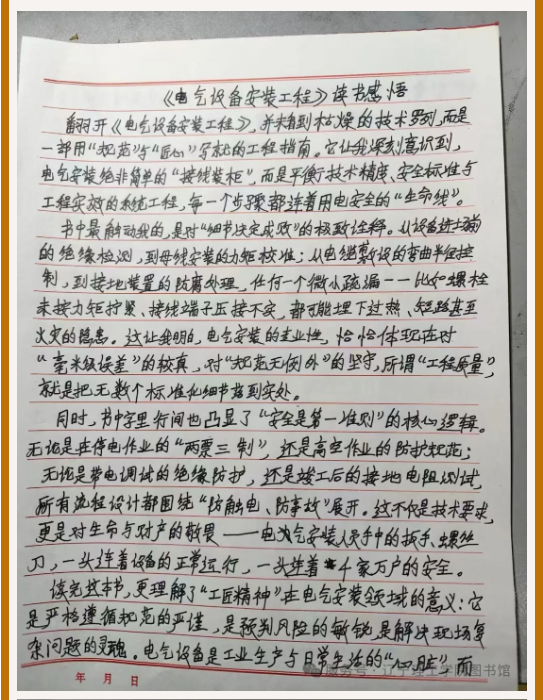 《电气设备安装工程》读书感悟
翻开《电气设备安装工程》，并未看到枯燥的技术罗列，而是
一部用“规范”与“匠心”写就的工程指南。它让我深刻意识到，
电气安装绝非简单的“接线装柜”，而是平衡技术精度、安全标准与
工程实效的系统工程，每一个步骤都连着用电安全的“生命线”。
书中最触动我的，是对“细节决定成败”的极致诠释。从设备进场前
的绝缘检测，到母线安装的力矩校准；从电缆敷设的弯曲半径控
制，到接地装置的防腐处理，任何一个微小疏漏——比如螺栓
未按力矩拧紧、接线端子压接不实，都可能埋下过热、短路甚至
火灾的隐患。这让我明白，电气安装的专业性，恰恰体现在对
“毫米级误差”的较真，对“规范无例外”的坚守，所谓“工程质量”，
就是把无数个标准化细节落到实处。
同时，书中字里行间也凸显了“安全是第一准则”的核心逻辑。
无论是在停电作业的“两票三制”，还是高空作业的防护规范；
无论是带电调试的绝缘防护，还是竣工后的接地电阻测试，
所有流程设计都围绕“防触电、防事故”展开。这不仅是技术要求，
更是对生命与财产的敬畏——电气安装人员手中的扳手、螺丝
刀，一头连着设备的正常运行，一头连着千家万户的安全。
读完这本书，更理解了“工匠精神”在电气安装领域的意义：它
是严格遵循规范的严谨，是预判风险的敏锐，是解决现场复
杂问题的灵魂。电气设备是工业生产与日常生活的“心脏”，而
年 月 日
公众号·辽宁理工学院图书馆